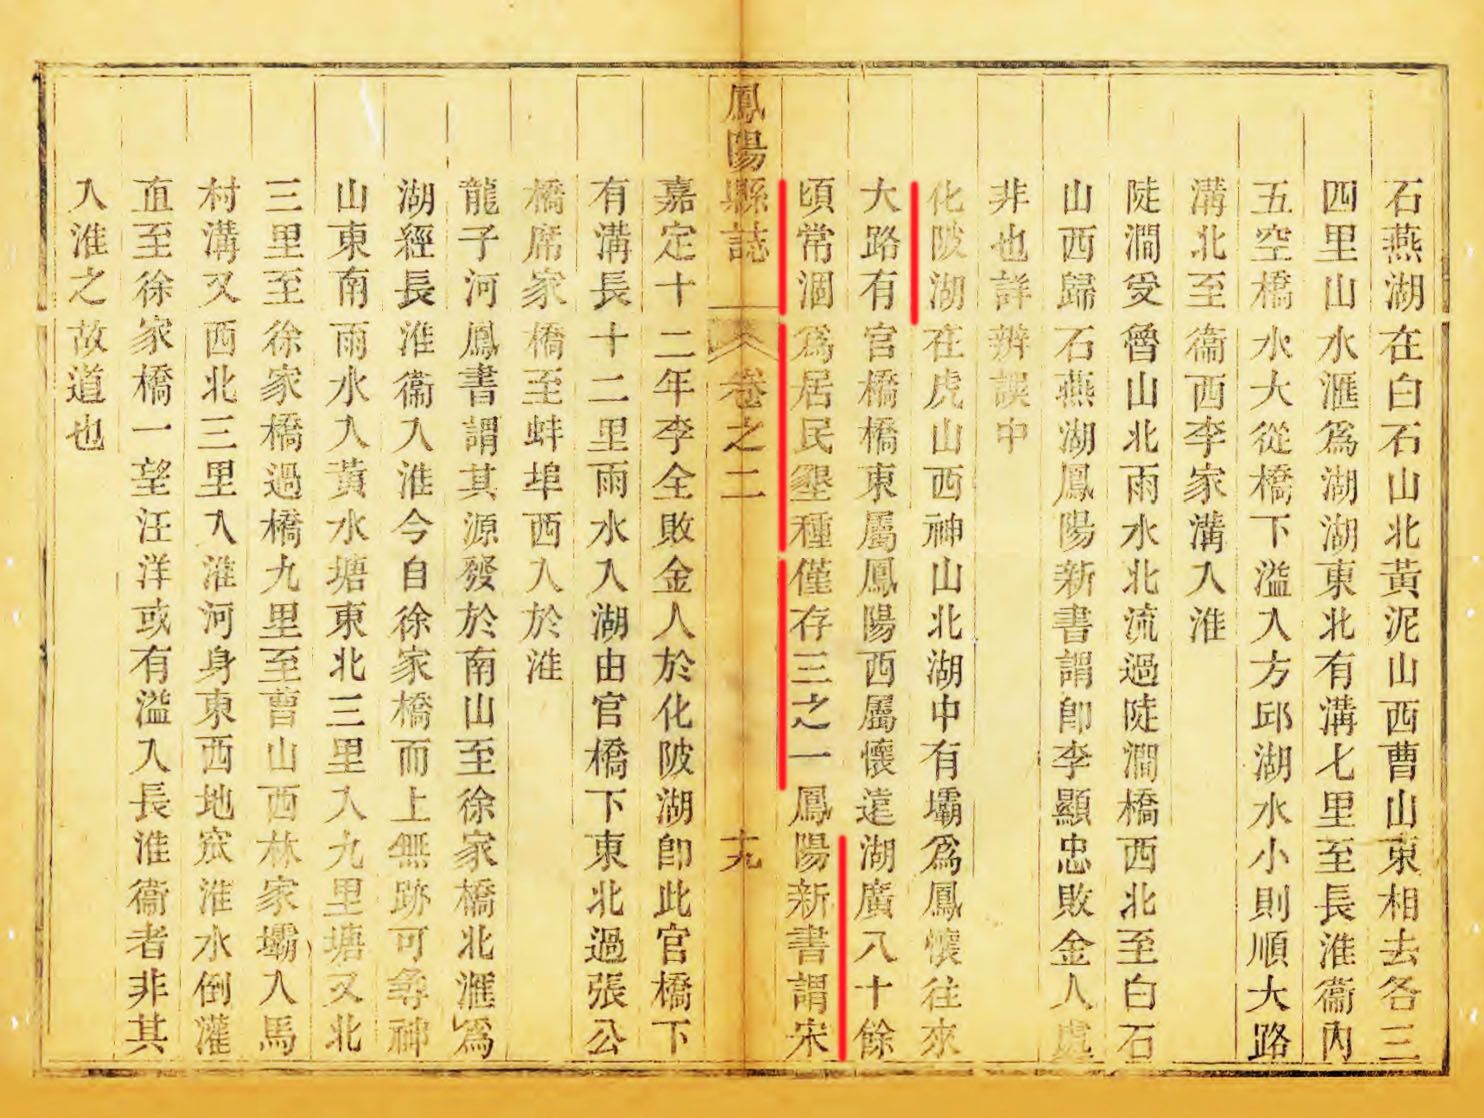 石燕湖在白石山北黃泥山西曹山東相去各三
四里山水滙爲湖湖東北有溝七里至長淮衞內
五空橋水大從橋下溢入方邱湖水小則順大路
溝北至衞西李家溝入淮
陡澗受魯山北雨水北流過陡澗橋西北至白石
山西歸石燕湖鳳陽新書謂卽李顯忠敗金人處
非也詳辨誤中
化陂湖在虎山西神山北湖中有壩爲鳳懷往來
大路有官橋橋東屬鳳陽西屬懷遠湖廣八十餘
頃常涸爲居民墾種僅存三之一鳳陽新書謂宋
鳳陽縣誌 卷之二 十九
嘉定十二年李全敗金人於化陂湖卽此官橋下
有溝長十二里雨水入湖由官橋下東北過張公
橋席家橋橋至蚌埠西入於淮
龍子河鳳書謂其源發於南山至徐家橋北滙爲
湖經長淮衞入淮今自徐家橋而上無跡可尋神
山東南雨水入黃水塘東北三里入九里塘又北
三里至徐家橋過橋九里至曹山西林家壩入馬
村溝又西北三里入淮河身東西地窊淮水倒灌
直至徐家橋一望汪洋或有溢入長淮衞者非其
入淮之故道也